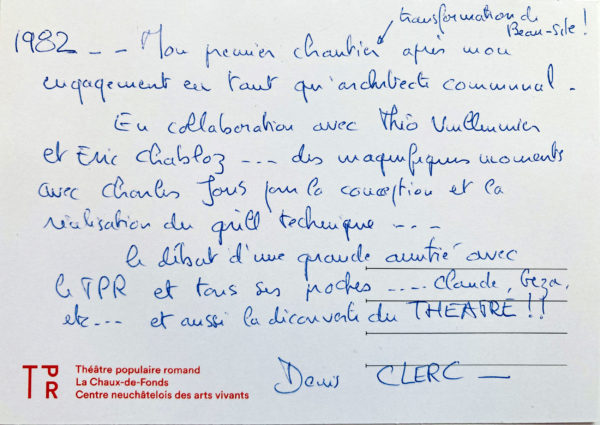 transformation de
Beau-Site !
1982 -- Mon premier chantier après mon
engagement en tant qu'architecte communal.
En collaboration avec Théo Vuilleumier
et Eric Chabloz --- des magnifiques moments
avec Charles Joris pour la conception et la
réalisation du grill technique ---
le début d'une grande amitié avec
le TPR et tous ses proches .... Claude, Geza,
etc... et aussi la découverte du THEATRE !!
Denis CLERC —
TPR
Théâtre populaire romand
La Chaux-de-Fonds
Centre neuchâtelois des arts vivants